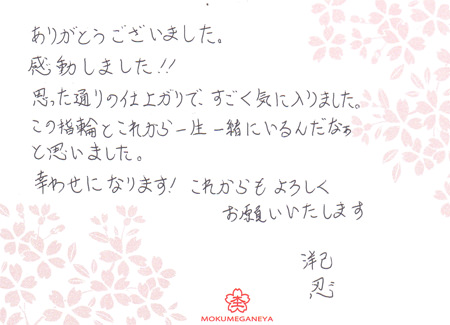 ありがとうございました。
感動しました!!
思った通りの仕上がりで、すごく気に入りました。
この指輪とこれから一生一緒にいるんだなぁ
と思いました。
幸わせになります! これからもよろしく
お願いいたします
洋己
忍
MOKUMEGANEYA